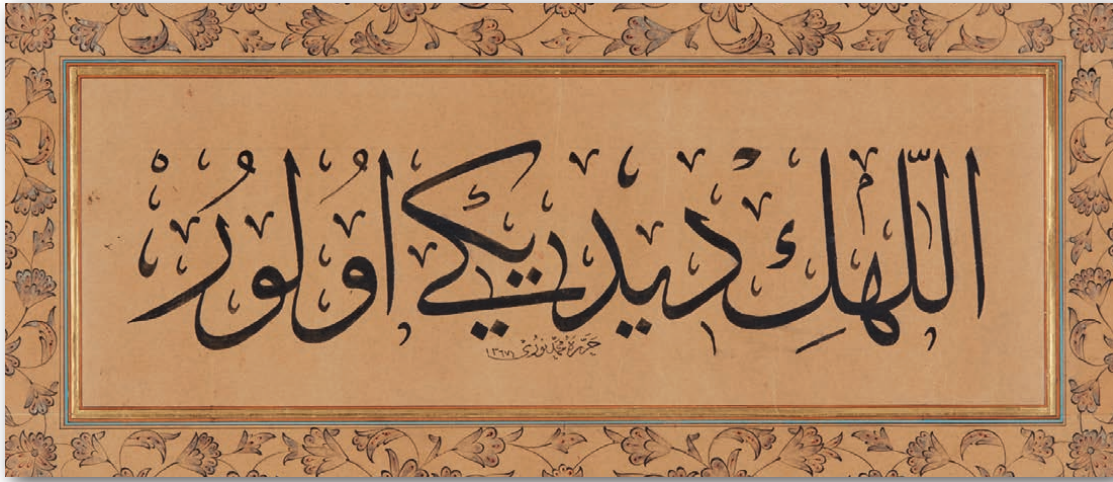 اللّٰهك ديديكى اولور
حرره محمد نورى ١٣٦٧